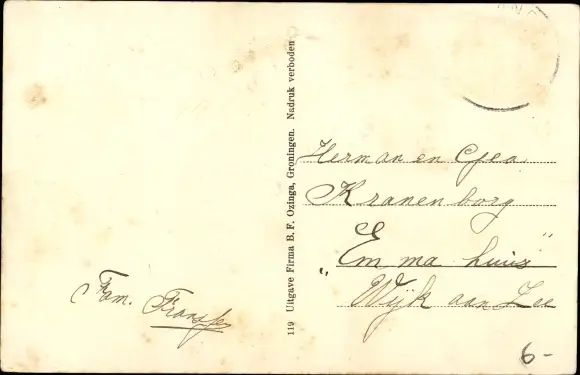 Fam.
119 Uitgave Firma B. F. Ozinga, Groningen. Nadruk verboden
Herman en Gea
Kranenborg
„Emma huis”
Wijk aan Zee
6-